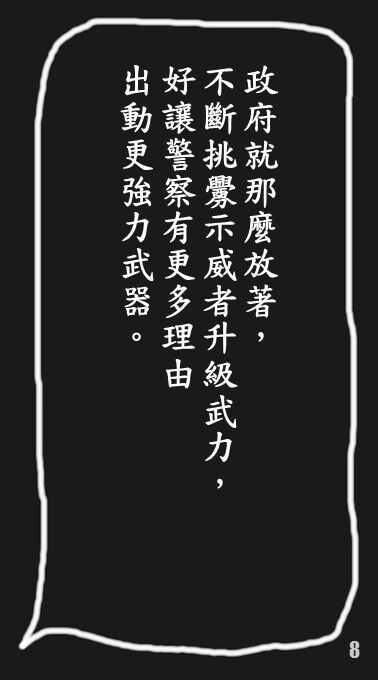 政府就那麼放著，
不斷挑釁示威者升級武力，
好讓警察有更多理由
出動更強力武器。
8